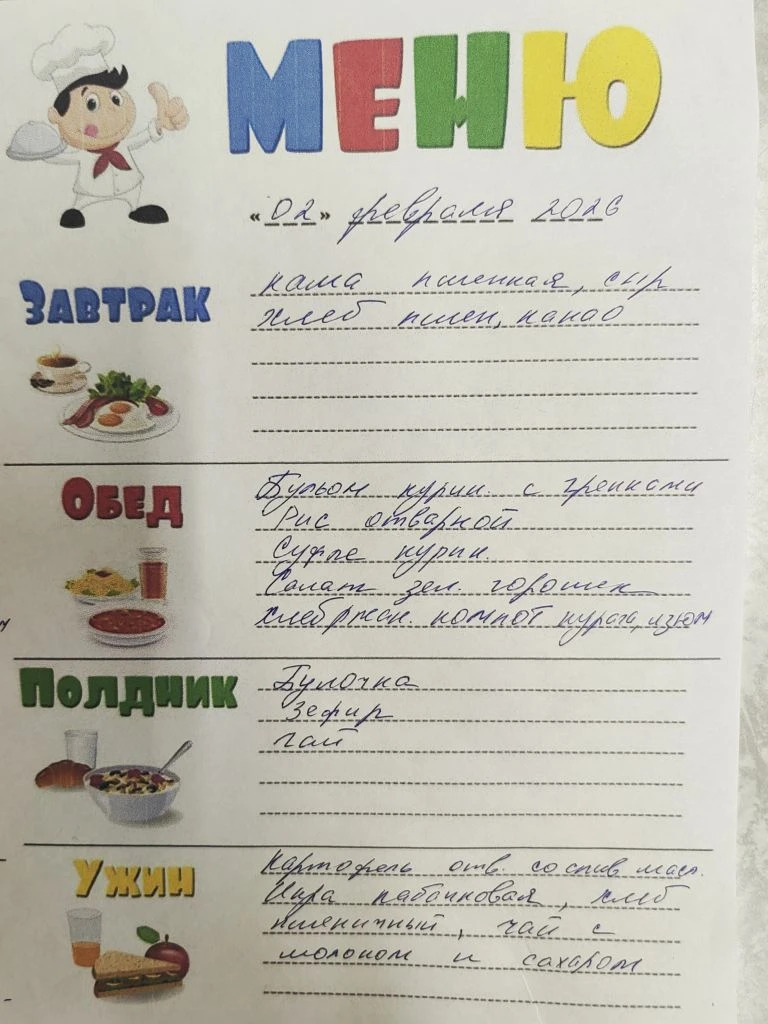 МЕНЮ
«02» февраля 2026
ЗАВТРАК
каша пшенная, сыр
хлеб пшен, какао
ОБЕД
Бульон курин. с гренками
Рис отварной
Суфле курин.
Салат зел. горошек
хлеб ржан. компот курага, изюм
ПОЛДНИК
Булочка
Зефир
чай
УЖИН
Картофель отв. со слив масл.
Икра кабачковая, хлеб
пшеничный, чай с
молоком и сахаром